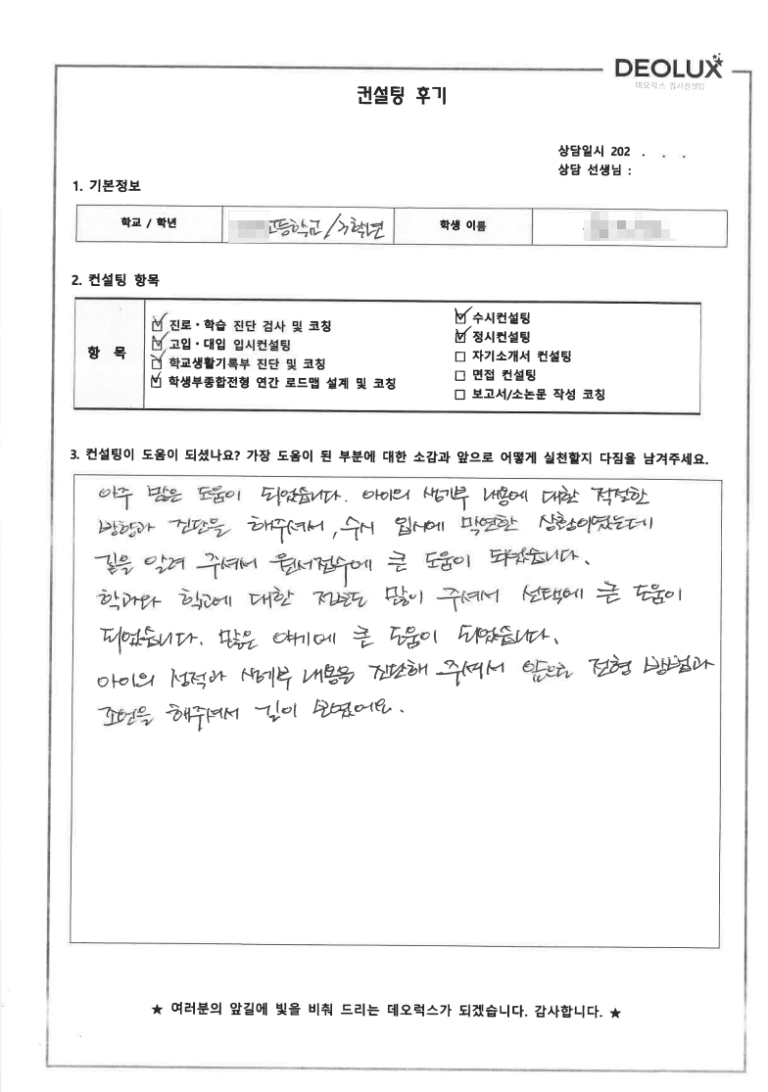 DEOLUX
데오럭스 입시컨설팅
컨설팅 후기
상담일시 202 . . .
상담 선생님 :
1. 기본정보
학교 / 학년 고등학교/3학년 학생 이름
2. 컨설팅 항목
항 목
진로·학습 진단 검사 및 코칭
고입·대입 입시컨설팅
학교생활기록부 진단 및 코칭
학생부종합전형 연간 로드맵 설계 및 코칭
수시컨설팅
정시컨설팅
자기소개서 컨설팅
면접 컨설팅
보고서/소논문 작성 코칭
3. 컨설팅이 도움이 되셨나요? 가장 도움이 된 부분에 대한 소감과 앞으로 어떻게 실천할지 다짐을 남겨주세요.
아주 많은 도움이 되었습니다. 아이의 생기부 내용에 대한 적절한
방향과 진단을 해주셔서, 수시 입시에 막연한 상황이였는데
길을 알려 주셔서 원서접수에 큰 도움이 되었습니다.
학과와 학교에 대한 정보도 많이 주셔서 선택에 큰 도움이
되었습니다. 많은 얘기에 큰 도움이 되었습니다.
아이의 성적과 생기부 내용을 진단해 주셔서 앞으로 전형 방법과
조언을 해주셔서 길이 보였어요.
★ 여러분의 앞길에 빛을 비춰 드리는 데오럭스가 되겠습니다. 감사합니다. ★